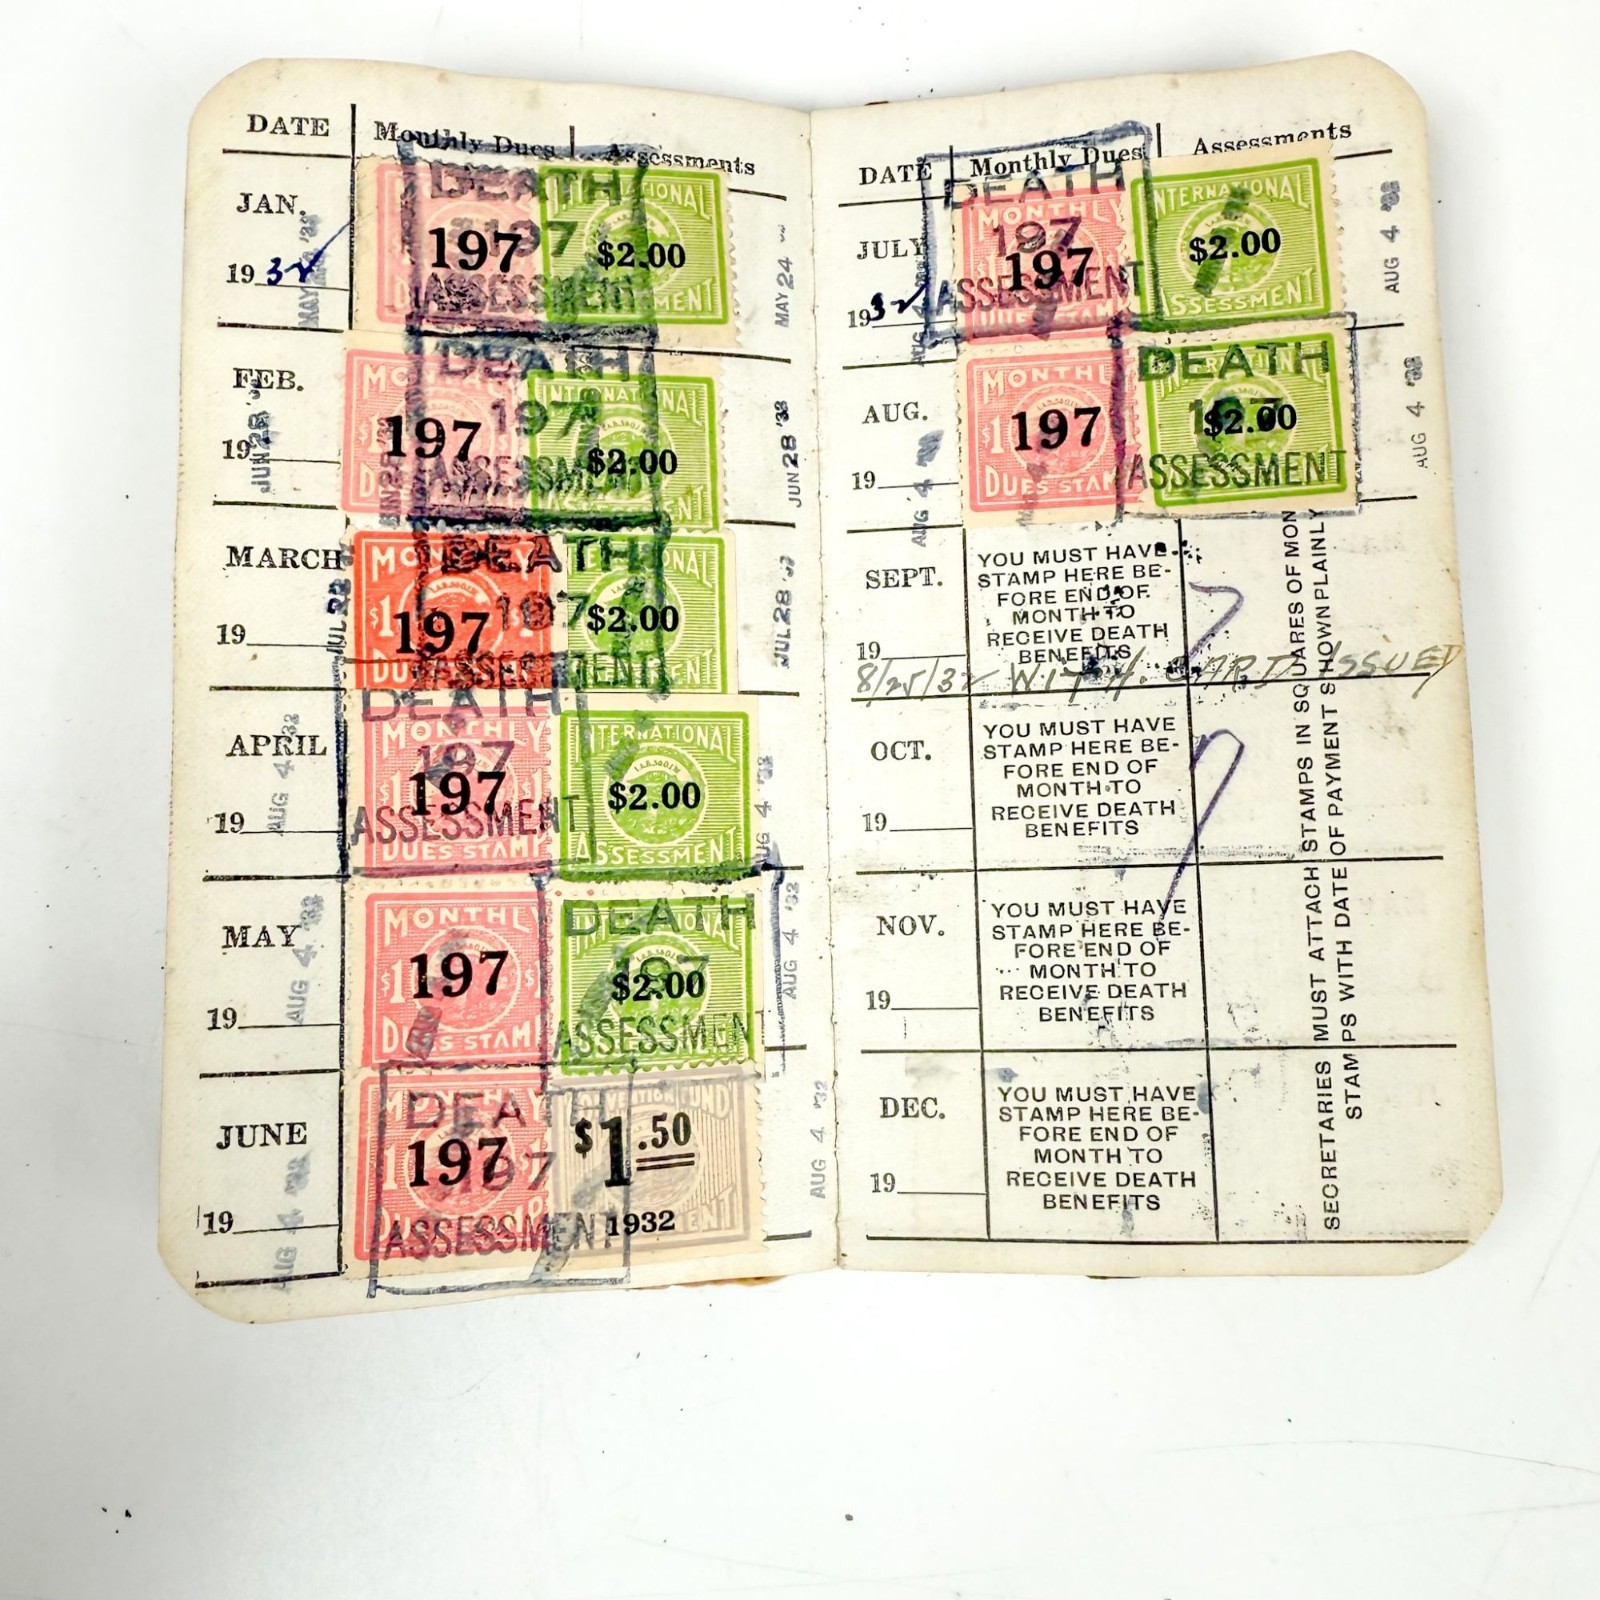 DATE Monthly Dues Assessments
JAN.
1932
MAY '32
DEATH
197
ASSESSMENT
197
INTERNATIONAL
$2.00
ASSESSMENT
MAY 24
FEB.
19
JUN 28
MONTHLY
DEATH
197
ASSESSMENT
197
DUES
INTERNATIONAL
$2.00
ASSESSMENT
JUN 28 '32
MARCH
19
JUL 28
MONTHLY
DEATH
$1
197
197
DUES
ASSESSMENT
INTERNATIONAL
$2.00
JUL 28
APRIL
19
AUG 4 '32
DEATH
MONTHLY
197
197
ASSESSMENT
DUES STAMP
INTERNATIONAL
$2.00
ASSESSMENT
AUG 4 '32
MAY
19
AUG 4 '32
MONTHLY
$1 197 $1
DUES STAMP
DEATH
INTERNATIONAL
197
$2.00
ASSESSMENT
AUG 4 '32
JUNE
19
AUG 4 '32
MONTHLY
DEATH
197
197
ASSESSMENT
CONVENTION FUND
$1.50
1932
AUG 4 '32
DATE Monthly Dues Assessments
JULY
1932
AUG 4
DEATH
MONTHLY
197
197
ASSESSMENT
DUES STAMP
INTERNATIONAL
$2.00
ASSESSMENT
AUG 4 '32
AUG.
19
AUG 4
MONTHLY
$1
197
DUES STAMP
DEATH
INTERNATIONAL
197
$2.00
ASSESSMENT
AUG 4 '32
SEPT.
19
YOU MUST HAVE
STAMP HERE BE-
FORE END OF
MONTH TO
RECEIVE DEATH
BENEFITS
8/25/32 WITH. CARD ISSUED
OCT.
19
YOU MUST HAVE
STAMP HERE BE-
FORE END OF
MONTH TO
RECEIVE DEATH
BENEFITS
NOV.
19
YOU MUST HAVE
STAMP HERE BE-
FORE END OF
MONTH TO
RECEIVE DEATH
BENEFITS
DEC.
19
YOU MUST HAVE
STAMP HERE BE-
FORE END OF
MONTH TO
RECEIVE DEATH
BENEFITS
SECRETARIES MUST ATTACH STAMPS IN SQUARES OF MON
STAMPS WITH DATE OF PAYMENT SHOWN PLAINLY